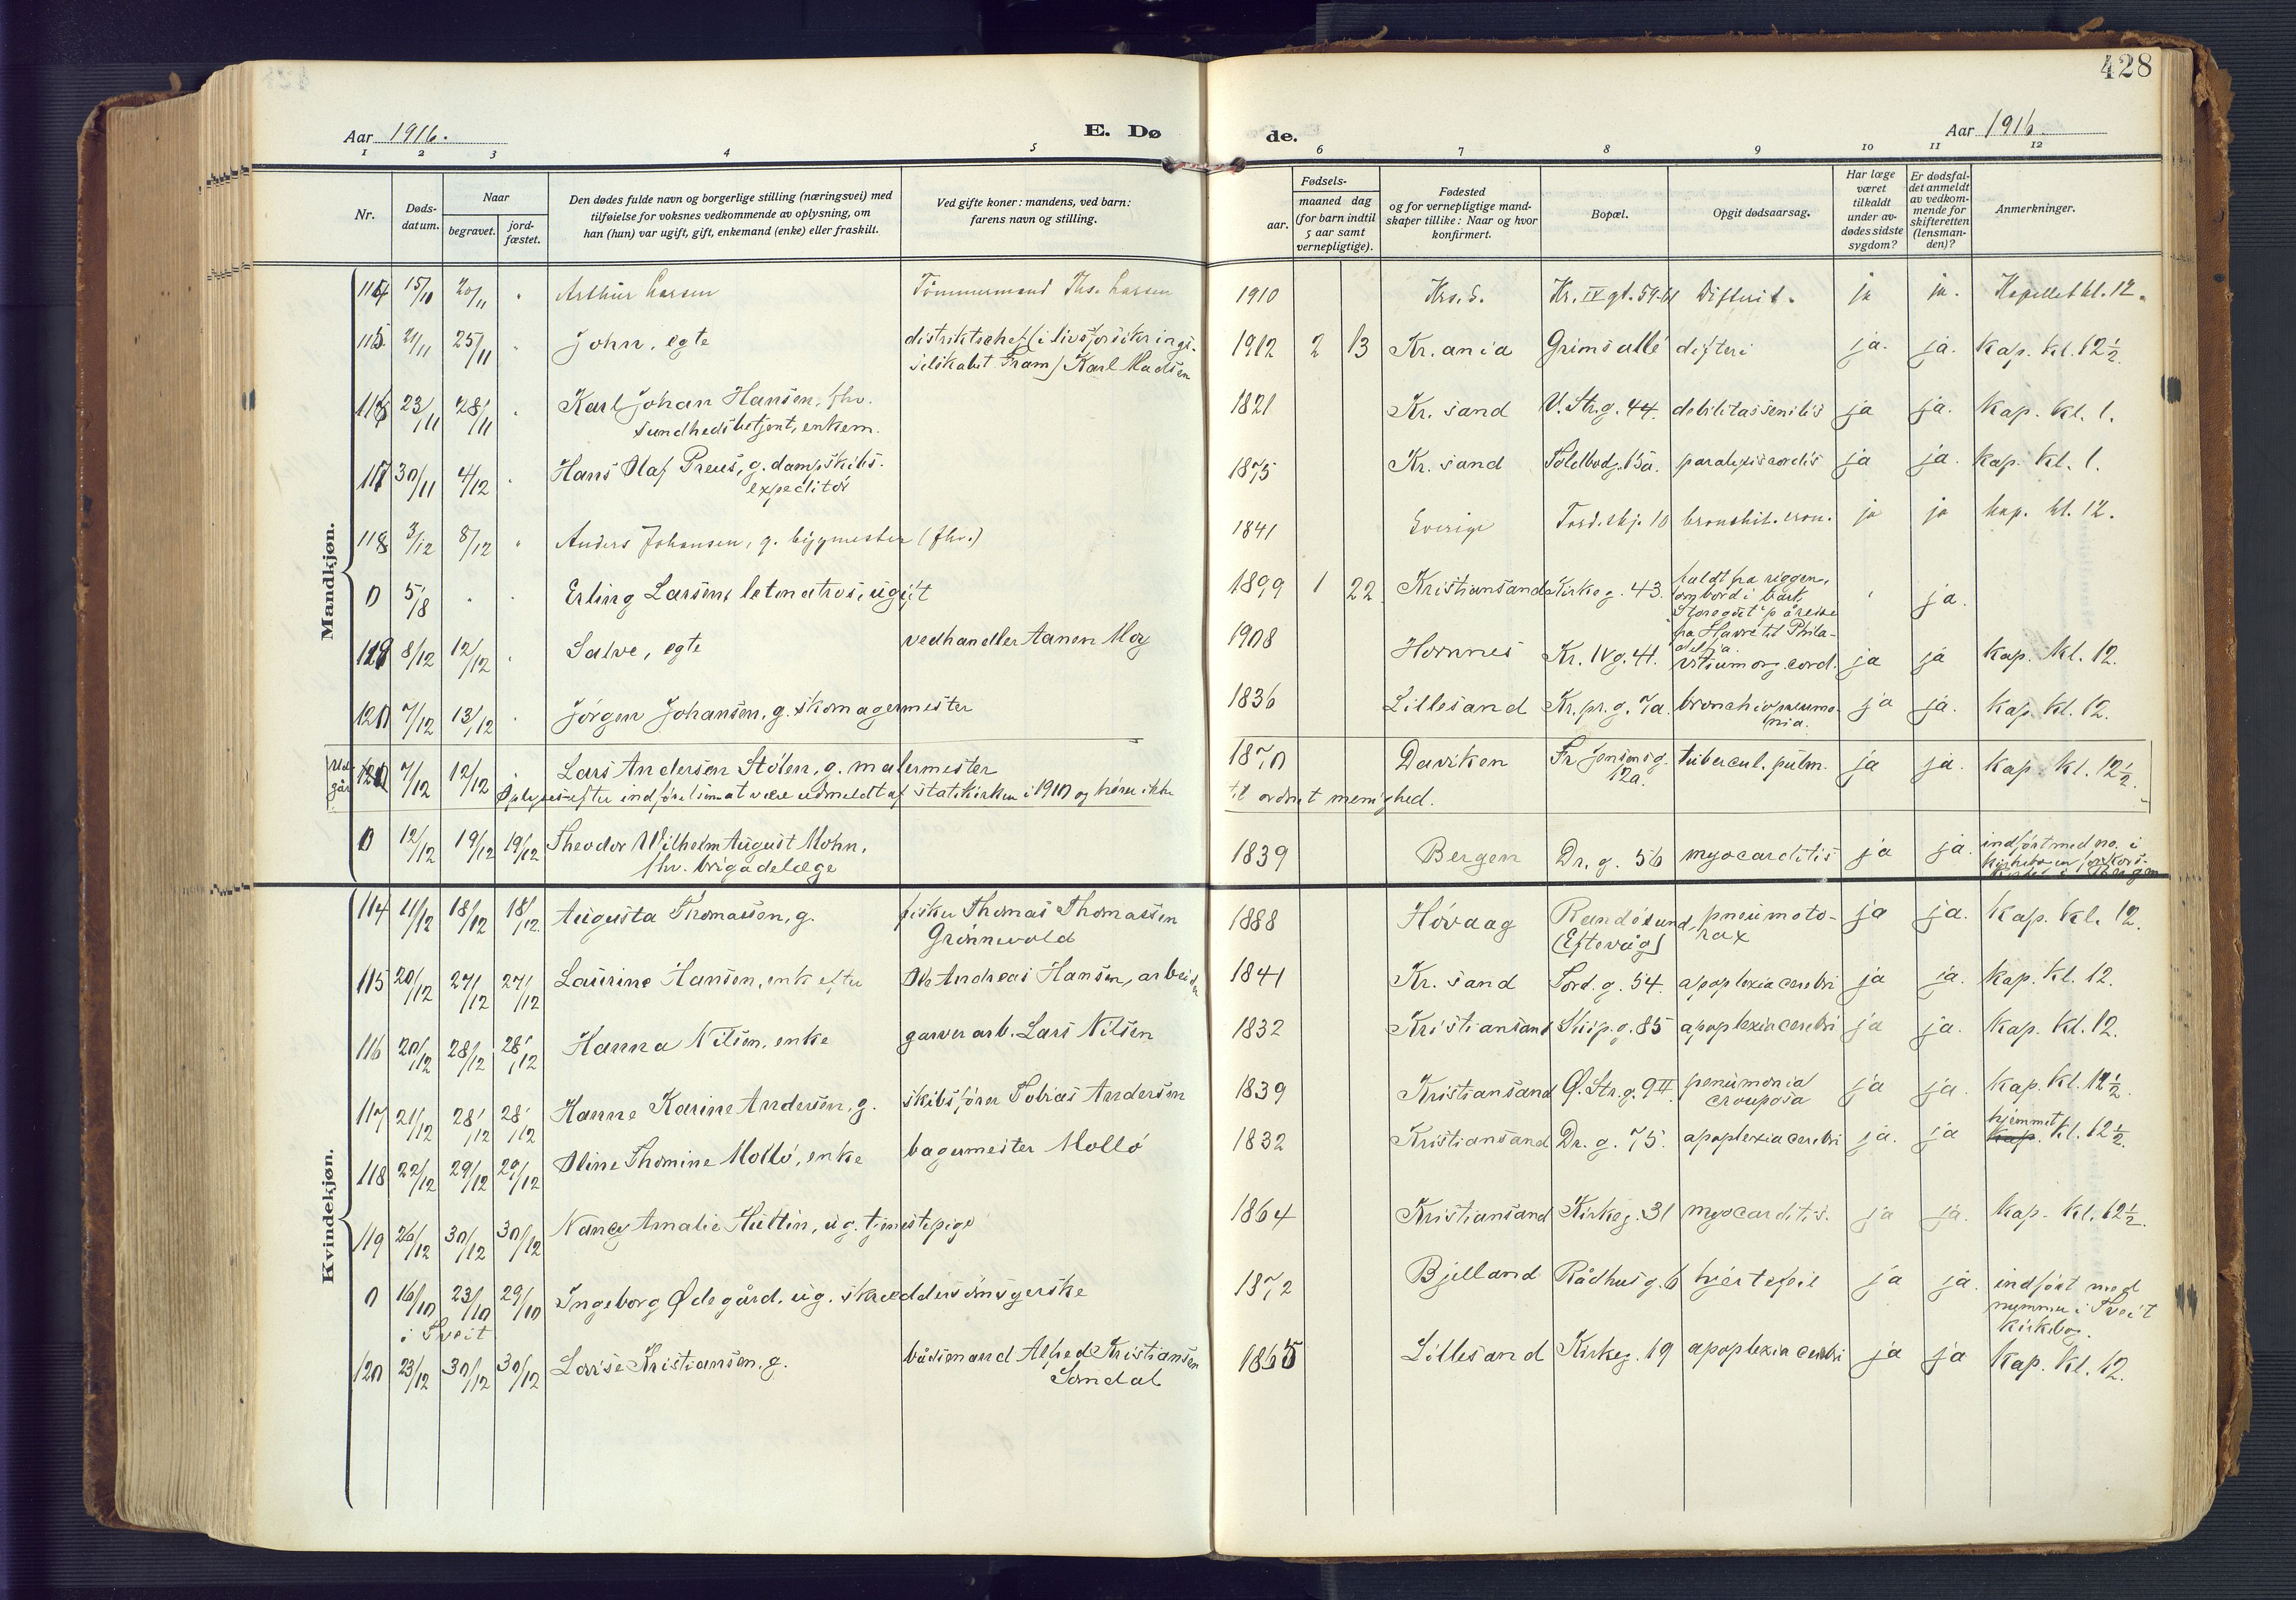 428
Aar 1916.
E. Dø
de.
Aar 1916.
1 2 3 4 5 6 7 8 9 10 11 12
Nr.
Døds-
datum.
Naar
begravet.
jord-
fæstet.
Den dødes fulde navn og borgerlige stilling (næringsvei) med
tilføielse for voksnes vedkommende av oplysning, om
han (hun) var ugift, gift, enkemand (enke) eller fraskilt.
Ved gifte koner: mandens, ved barn:
farens navn og stilling.
Fødsels-
aar.
maaned dag
(for barn indtil
5 aar samt
vernepligtige).
Fødested
og for vernepligtige mand-
skaper tillike: Naar og hvor
konfirmert.
Bopæl.
Opgit dødsaarsag.
Har læge
været
tilkaldt
under av-
dødes sidste
sygdom?
Er dødsfal-
det anmeldt
av vedkom-
mende for
skifteretten
(lensman-
den)?
Anmerkninger.
Mandkjøn.
114 15/11 20/11 " Arthur Larsen Tømmermand Ths. Larsen 1910 Krs.S. Kr. IV gt. 59-61 Difterit. ja ja. Kapellet kl. 12.
115. 21/11 25/11 " John, egte distriktschef (i livsforsikrings- 1912 2 13 Kr.ania Grims allé difteri ja. ja. Kap. kl. 12½.
selskabet Fram) Karl Madsen
116 23/11 28/11 " Karl Johan Hansen, fhv. 1821 Kr. sand V. Str.g. 44. debilitas senilis ja ja. Kap. kl. 1.
sundhedsbetjent, enkem.
117 30/11 4/12 " Hans Olaf Preus, g. dampskibs- 1875 Kr. sand Toldbodg. 15a. paralysis cordis ja ja. Kap. kl. 1.
expeditør
118 3/12 8/12 " Anders Johansen, g. bygmester (fhv.) 1841 Sverige Tord.skj. 10 bronkit. cron. ja ja kap. kl. 12.
0 5/8 " " Erling Larsen, letmatros, ugift 1899 1 22 Kristiansand Kirkeg. 43. faldt fra riggen, " ja.
ombord i bark
Storegut på reise
fra Havre til Phila-
delfia.
119 8/12 12/12 " Salve, egte vedhandler Aanen Moy 1908 Hornnes Kr. IV g. 41. vitium org. cord. ja ja Kap. kl. 12.
120 7/12 13/12 " Jørgen Johansen, g. skomagermester 1836 Lillesand Kr. pr. g. 7a. bronchiopneumo- ja ja. Kap. kl. 12.
nia.
Ud-
går
120 7/12 12/12 " Lars Andersen Stølen, g. malermester 1870 Daviken Fr Jensens g. tubercul. pulm. ja ja. Kap. kl. 12½.
12a.
Oplyses efter indførelsen at være udmeldt af statskirken i 1910 og hører ikke til ordnet menighed.
0 12/12 19/12 19/12 Theodor Wilhelm August Mohn, 1839 Bergen Dr. g. 56 myocarditis ja ja. indført med no. i
fhv. brigadelæge
Kvindekjøn.
114 11/12 18/12 18/12 Augusta Thomassen, g. fisker Thomas Thomassen 1888 Høvaag Randøsund, pneumoto- ja ja. Kap. kl. 12.
Grønnevold (Eftevåg) rax
115 20/12 27/12 27/12 Laurine Hansen, enke efter Ole Andreas Hansen, arbeider 1841 Kr. sand Tord. g. 54. apoplexia cerebri ja ja. Kap. kl. 12.
116 20/12 28/12 28/12 Hanna Nilsen, enke garverarb. Lars Nilsen 1832 Kristiansand Skip. g. 85 apoplexia cerebri ja ja. Kap. kl. 12.
117 21/12 28/12 28/12 Hanne Karine Andersen, g. skibsfører Tobias Andersen 1839 Kristiansand Ø. Str. g. 9 II. penumonia ja ja. Kap. kl. 12½.
crouposa
118 22/12 29/12 29/12 Oline Thomine Mollø, enke bagermester Mollø 1832 Kristiansand Dr. g. 75. apoplexia cerebri ja. ja hjemmet
Kap. kl. 12½.
119 26/12 30/12 30/12 Nancy Amalie Hultin, ug. tjenestepige 1864 Kristiansand Kirkeg. 31 myocarditis. ja ja. Kap. kl. 12½.
0 16/10 23/10 29/10 Ingeborg Ødegård, ug. skreddersømsgerske 1872 Bjelland Rådhusg. 6 hjertefeil ja ja. indført med
i Tveit nummer i Tveit
kirkebog.
120 23/12 30/12 30/12 Lovise Kristiansen, g. bådsmand Alfred Kristiansen 1865 Lillesand Kirkeg. 19 apoplexia cerebri ja ja Kap. kl. 12.
Somdal